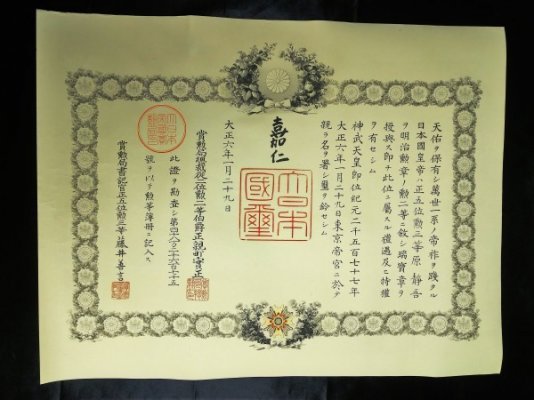 天佑ヲ保有シ萬世一系ノ帝祚ヲ踐タル
日本國皇帝ハ正五位勳三等原靜吾
ヲ明治勳章ノ勳二等ニ敍シ瑞寶章ヲ
授與ス即チ此位ニ屬スル禮遇及ヒ特權
ヲ有セシム
神武天皇即位紀元二千五百七十七年
大正六年一月二十九日東京帝宮ニ於テ
親ラ名ヲ署シ璽ヲ鈐セシム
嘉仁
大日本
國璽
大正六年一月二十九日
賞勳局總裁從二位勳一等伯爵正親町實正
此證ヲ勘査シ第
號ヲ以テ勳等簿册ニ記入ス
賞勳局書記官正五位勳三等藤井善言